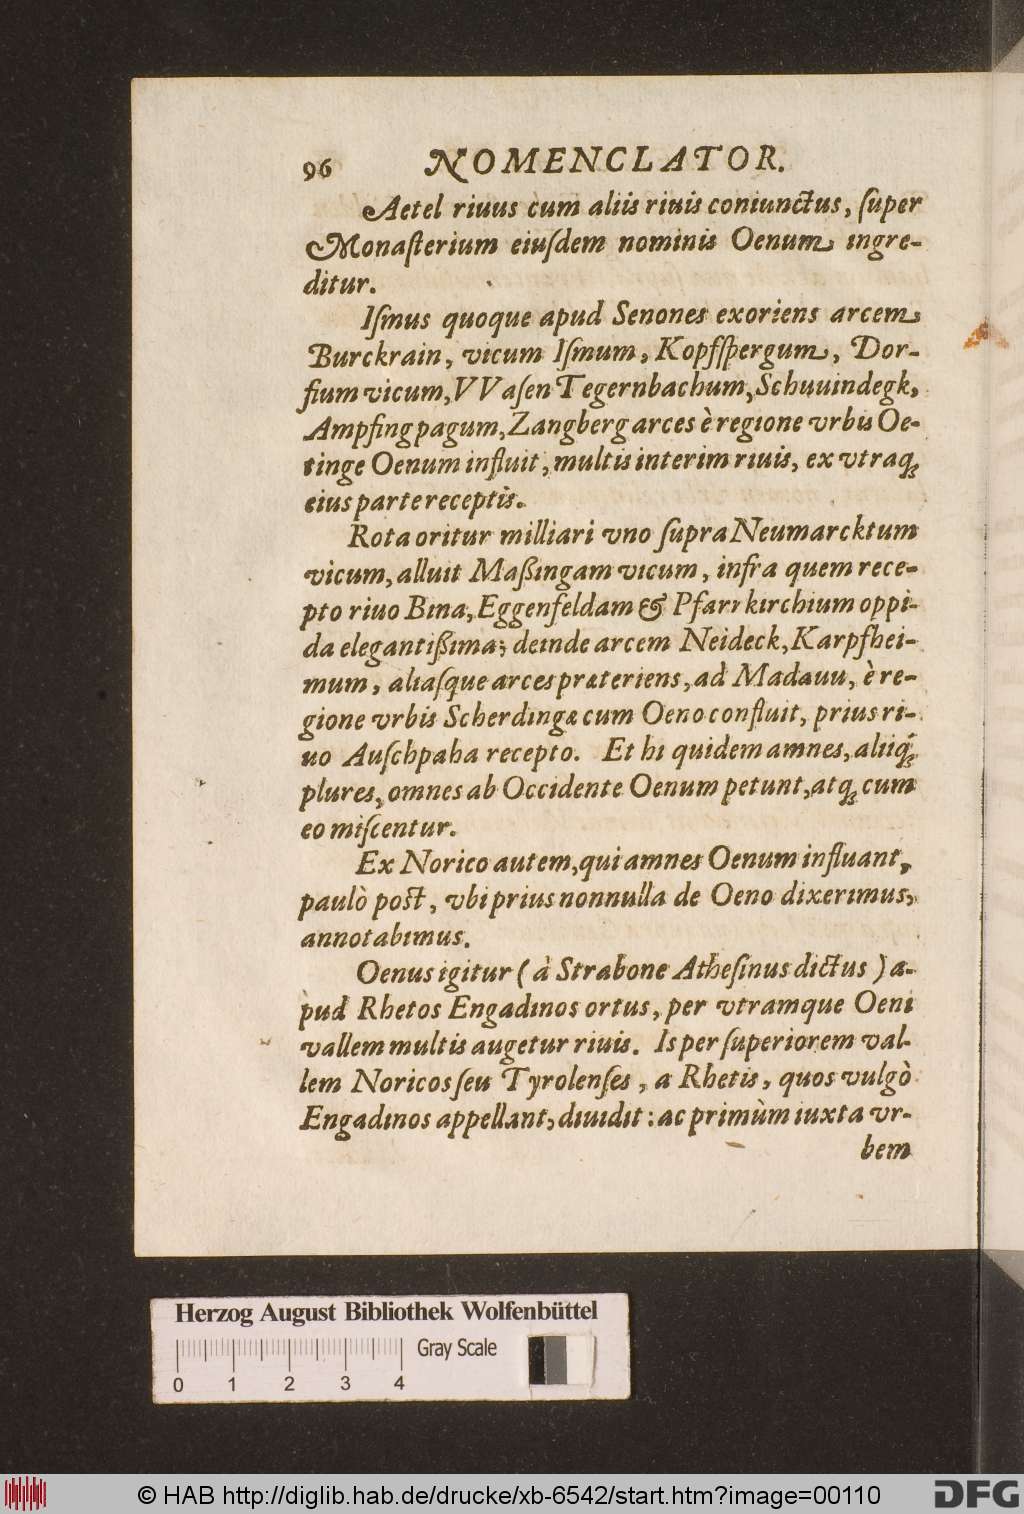 96 NOMENCLATOR.
Aetel riuus cum aliis riuis coniunctus, ſuper
Monaſterium eiuſdem nominis Oenum ingre-
ditur.
Iſmus quoque apud Senones exoriens arcem
Burckrain, vicum Iſmum, Kopfſpergum, Dor-
fium vicum, VVaſen Tegernbachum, Schuuindegk,
Ampfing pagum, Zangberg arces è regione vrbis Oe-
tinge Oenum influit, multis interim riuis, ex vtraq́;
eius parte receptis.
Rota oritur milliari vno ſupra Neumarcktum
vicum, alluit Maßingam vicum, infra quem rece-
pto riuo Bina, Eggenfeldam & Pfarrkirchium oppi-
da elegantißima; deinde arcem Neideck, Karpfhei-
mum, aliaſque arces præteriens, ad Madauu, è re-
gione vrbis Scherdingæ cum Oeno confluit, prius ri-
uo Auſchpaha recepto. Et hi quidem amnes, aliiq́;
plures, omnes ab Occidente Oenum petunt, atq; cum
eo miſcentur.
Ex Norico autem, qui amnes Oenum influant,
paulò poſt, vbi prius nonnulla de Oeno dixerimus,
annotabimus.
Oenus igitur (à Strabone Atheſinus dictus) a-
pud Rhetos Engadinos ortus, per vtramque Oeni
vallem multis augetur riuis. Is per ſuperiorem val-
lem Noricos ſeu Tyrolenſes, a Rhetis, quos vulgò
Engadinos appellant, diuidit: ac primùm iuxta vr-
bem
Herzog August Bibliothek Wolfenbüttel
Gray Scale
0 1 2 3 4
© HAB http://diglib.hab.de/drucke/xb-6542/start.htm?image=00110
DFG